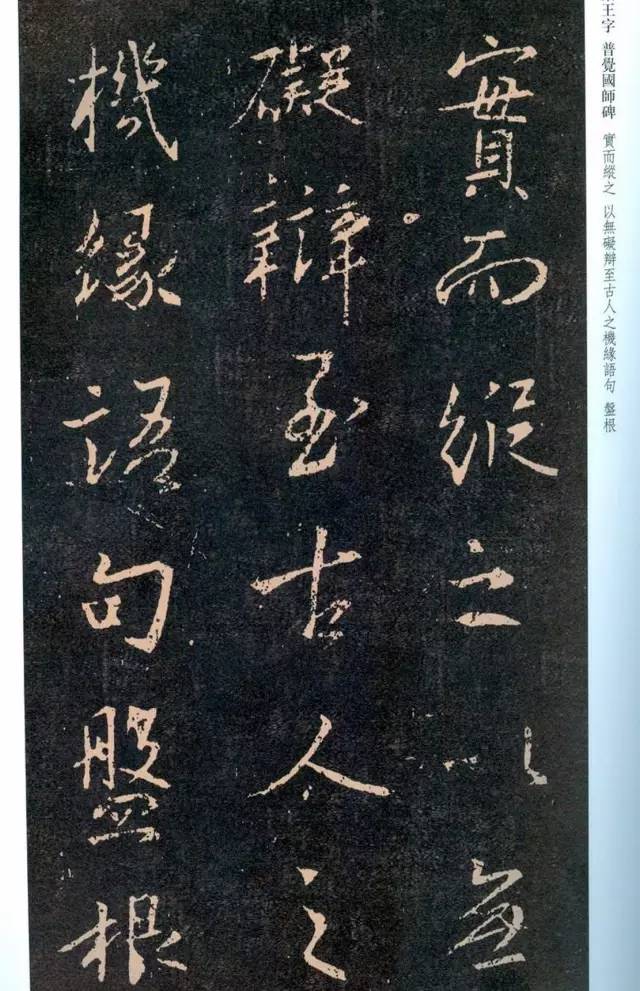 王字 普覺國師碑 實而縱之 以無礙辯至古人之機緣語句 盤根
實而縱之以無
礙辯至古人之
機緣語句盤根